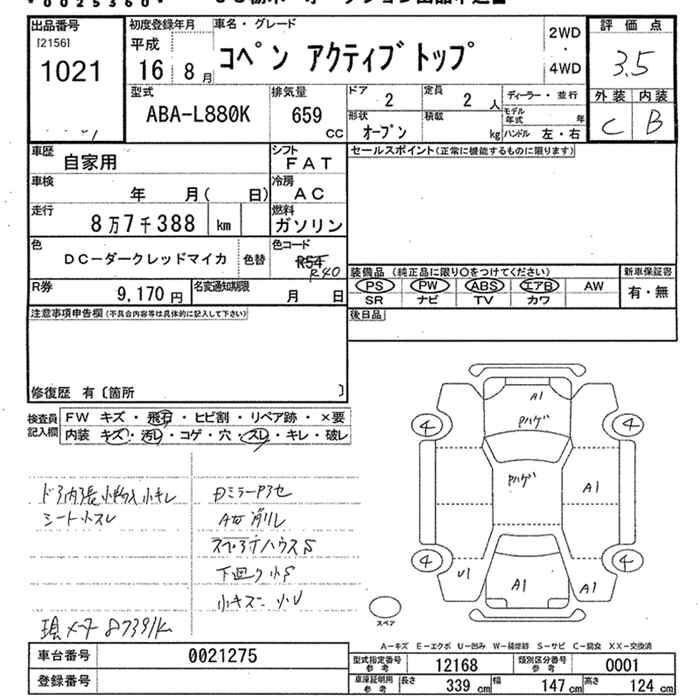 *0025360*
出品番号
[2156]
1021
初度登録年月
平成
16年8月
車名・グレード
コペン アクティブトップ
2WD
・
4WD
評価点
3.5
外装 内装
C B
型式
ABA-L880K
排気量
659 CC
ドア
2
定員
2 人
形状
オープン
積載
kg
ディーラー・並行
モデル年式 年
ハンドル 左・右
車歴
自家用
シフト
FAT
セールスポイント(正常に機能するものに限ります)
車検
年 月( 日)
冷房
AC
走行
8万7千388 km
燃料
ガソリン
色
DC-ダークレッドマイカ
色替
色コード
R54
R40
装備品 (純正品に限り○をつけてください)
新車保証書
PS PW ABS エアB AW
有・無
SR ナビ TV カワ
R券
9,170円
名変通知期限
月 日
後日品
注意事項申告欄(不具合内容等は具体的に記入して下さい)
修復歴 有〔箇所 〕
検査員記入欄
FW キズ・飛石・ヒビ割・リペア跡・×要
内装 キズ・汚レ・コゲ・穴・スレ・キレ・破レ
ドア内張小切レ
シート小スレ
下回り小S
小キズ 小U
現メータ 87391K
A1
Pハゲ
Pハゲ
A1
U1
A1
A1
4
4
4
4
スペア
A-キズ E-エクボ U-凹み W-補修跡 S-サビ C-腐食 XX-交換済
車台番号
0021275
登録番号
型式指定番号
参考
12168
類別区分番号
参考
0001
車庫証明用
参考
長さ
339 cm
幅
147 cm
高さ
124 cm